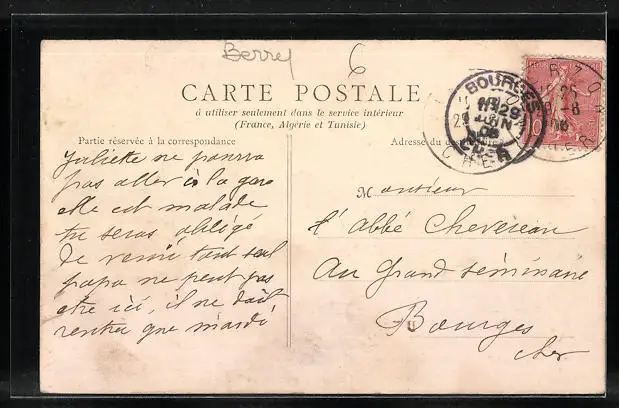 Berry
6
CARTE POSTALE
à utiliser seulement dans le service intérieur
(France, Algérie et Tunisie)
Partie réservée à la correspondance
Adresse du
Juliette ne pourra
pas aller à la gare
elle est malade
tu seras obligé
de venir tout seul
papa ne peut pas
etre ici, il ne doit
rentrer que mardi
Monsieur
l'abbé Chevereau
au Grand séminaire
Bourges
Cher
BOURGES
29
JUIN
06
CHER
10